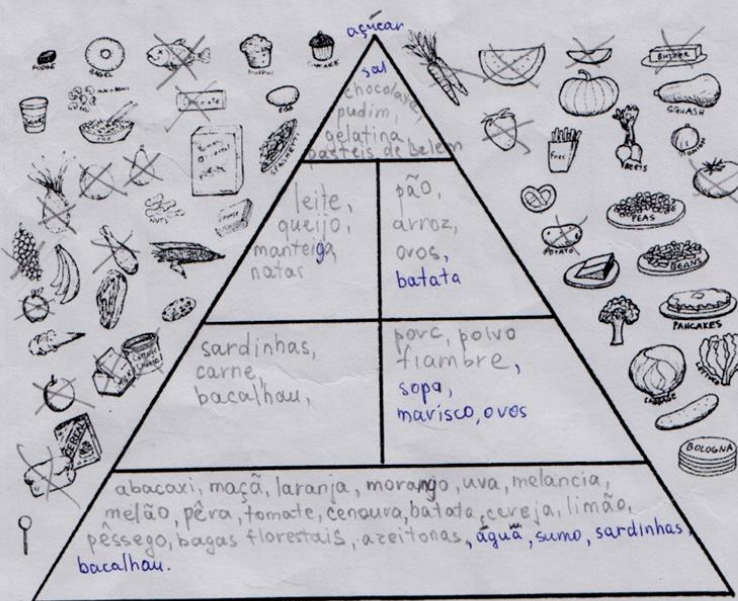 açúcar
sal
chocolate,
pudim,
gelatina
pasteis de belém
leite,
queijo,
manteiga,
natas
pão,
arroz,
ovos,
batata
sardinhas,
carne,
bacalhau,
porc, polvo
fiambre,
sopa,
marisco, ovos
abacaxi, maçã, laranja, morango, uva, melancia,
melão, pêra, tomate, cenoura, batata, cereja, limão,
pêssego, bagas florestais, azeitonas, água, sumo, sardinhas,
bacalhau.
FUDGE
BAGEL
EGG
SPAGHETTI
NUTS
MILK
CEREAL
BUTTER
SQUASH
BEETS
PEAS
POTATO
BEANS
PANCAKES
LETTUCE
CABBAGE
BOLOGNA